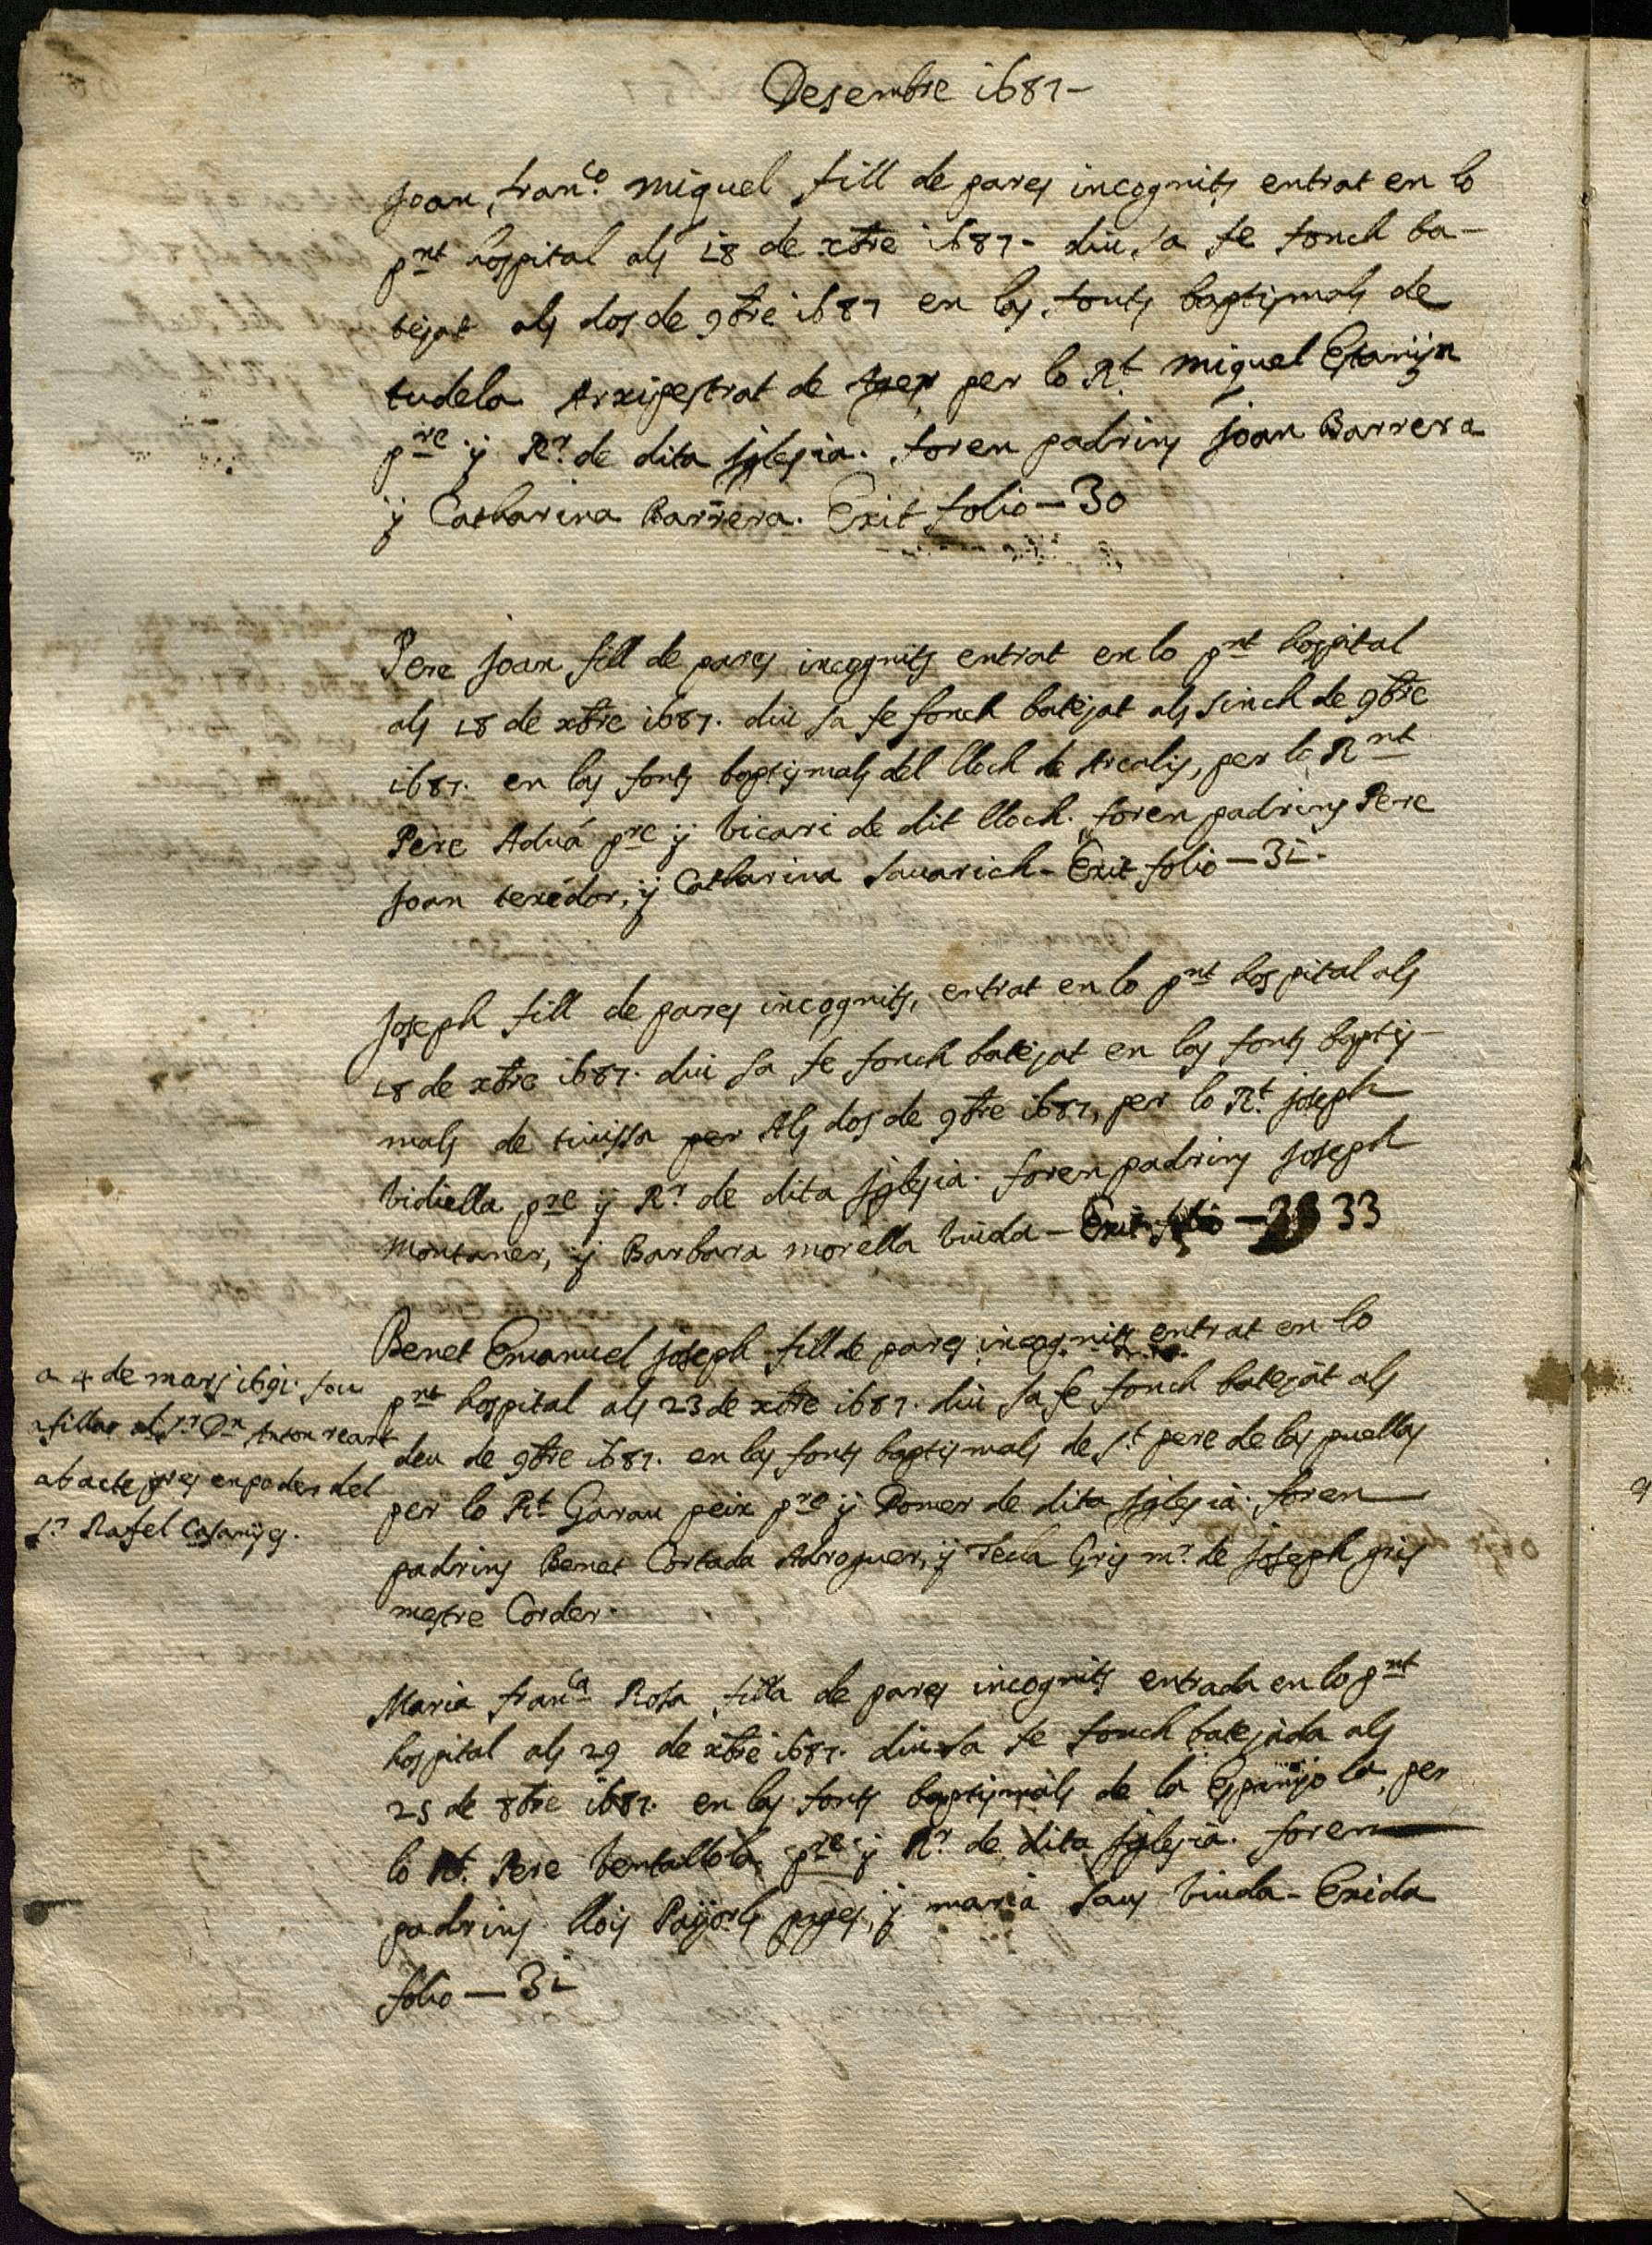 Desembre 1687-
Joan, franco. Miquel fill de pares incognits entrat en lo
pnt hospital als 18 de xbre 1687- diu sa fe fonch ba-
tejat als dos de 9bre 1687 en las fonts baptismals de
tudela Arxiprestrat de Ager per lo Rt. Miquel
pre y Rr. de dita Iglesia. foren padrins Joan Barrera
y Catharina Barrera. Exit folio-30
Pere Joan fill de pares incognits entrat en lo pnt hospital
als 18 de xbre 1687. diu sa fe fonch batejat als sinch de 9bre
1687. en las fonts baptismals del lloch de Arcalis, per lo Rnt
Pere Aduá pre y vicari de dit lloch. foren padrins Pere
Joan texédor, y Catharina sauarich- Exit folio-31.
Joseph fill de pares incognits, entrat en lo pnt hospital als
18 de xbre 1687. diu sa fe fonch batejat en las fonts baptis-
mals de tiuissa per Als dos de 9bre 1687, per lo Rt. Joseph
Vidiella pre y Rr de dita Iglesia. foren padrins Joseph
Montaner, y Barbara morella viuda- Exit folio - 33
Benet Emanuel Joseph fill de pares incognits entrat en lo
pnt hospital als 23 de xbre 1687. diu sa fe fonch batejat als
deu de 9bre 1687. en las fonts baptismals de St. pere de las puellas
per lo Rt Garau peix pre y Domer de dita Iglesia. foren
padrins Benet Cortada Adroguer, y Tecla Gris mr. de Joseph gris
mestre Corder.
a 4 de mars 1691. fou
afillat al Sr Dn Anton reart
ab acte pres en poder del
Sr Rafel Casanyes.
Maria franca Rosa filla de pares incognits entrada en lo pnt
hospital als 29 de xbre 1687. diu sa fe fonch batejada als
25 de 8bre 1687. en las fonts baptismals de la Espanyola, per
lo Rt. Pere Ventallola pre y Rr. de dita Iglesia. foren
padrins llois pages, y maria saus viuda- Exida
folio-31